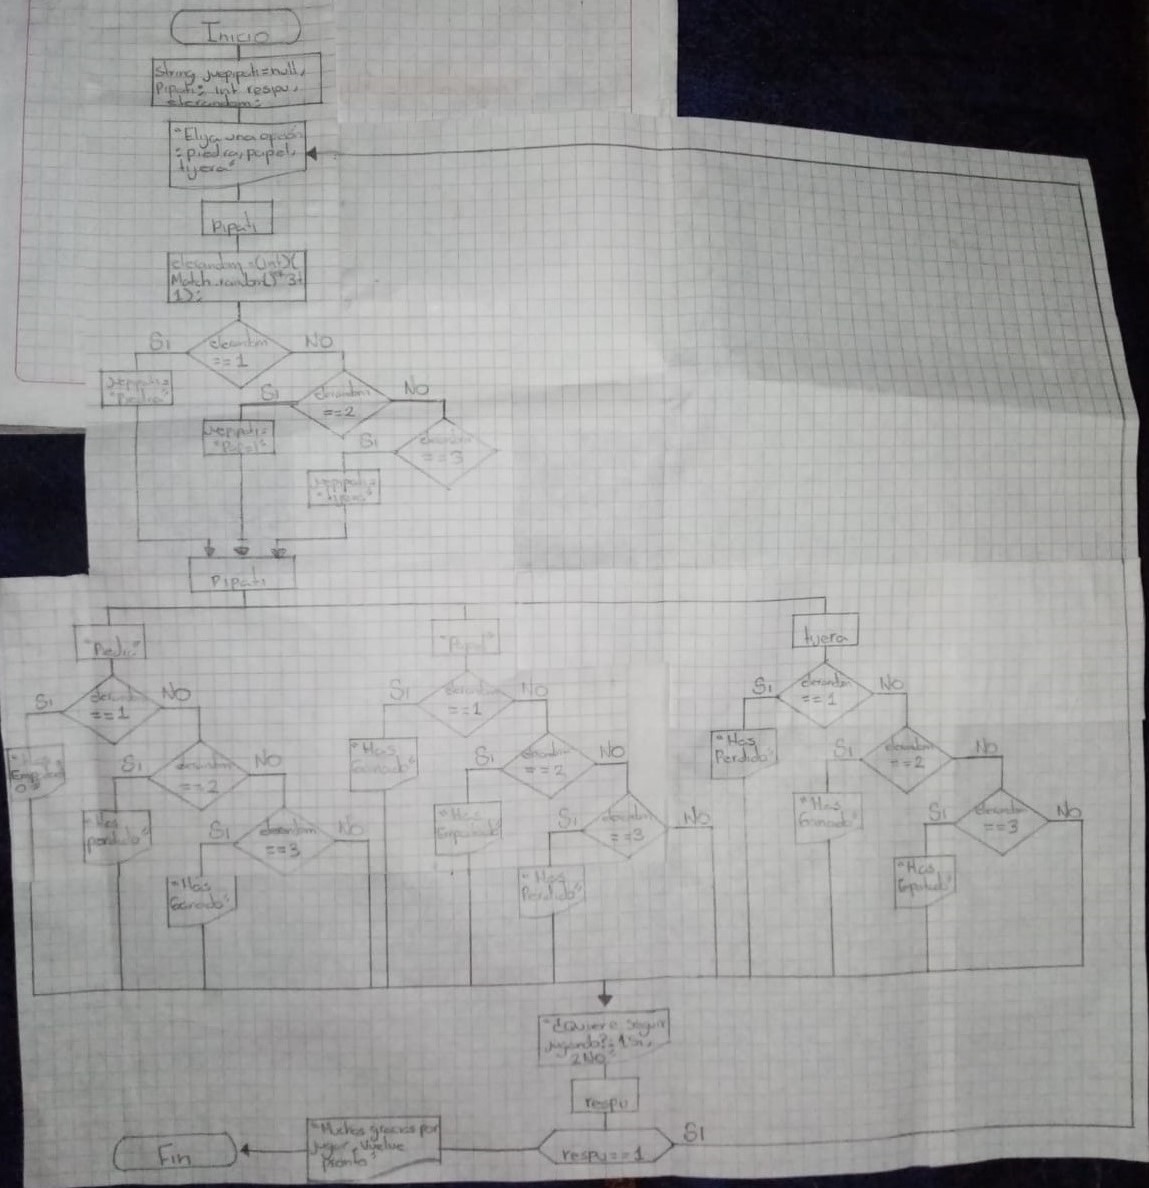 Inicio
String juepipati=null,
Pipati; int respu,
elerandom;
"Elija una opción
:piedra, papel,
tijera"
Pipati
elerandom =(int)(
Match.random()*3+
1);
Si
elerandom
==1
NO
juepipati=
"Piedra"
Si
elerandom
==2
NO
juepipati=
"Papel"
Si
elerandom
==3
juepipati=
"tijera"
Pipati
"Piedra"
"Papel"
tijera
Si
elerandom
==1
NO
Si
elerandom
==1
NO
Si
elerandom
==1
NO
"Has
Si
elerandom
==2
NO
"Has
Ganado"
Si
elerandom
==2
NO
"Has
Perdido"
Si
elerandom
==2
NO
"Has
perdido"
Si
elerandom
==3
NO
"Has
Empatado"
Si
elerandom
==3
NO
"Has
Ganado"
Si
elerandom
==3
NO
"Has
Ganado"
"Has
Perdido"
"Has
"¿Quiere seguir
jugando?:1Si,
2NO"
respu
respu==1
SI
"Muchas gracias por
jugar, vuelve
pronto"
Fin